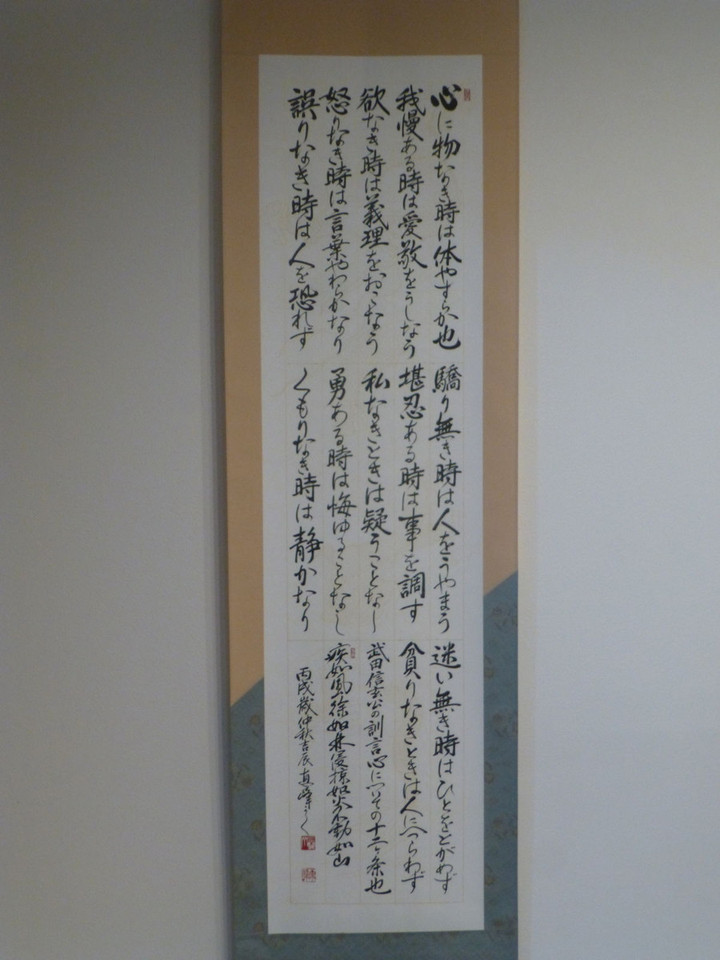 心に物なき時は体やすらか也
我慢ある時は愛敬をうしなう
欲なき時は義理をおこなう
怒りなき時は言葉やわらかなり
誤りなき時は人を恐れず
驕り無き時は人をうやまう
堪忍ある時は事を調す
私なきときは疑うことなし
勇ある時は悔ゆることなし
くもりなき時は静かなり
迷い無き時はひとをとがめず
貪りなきときは人にへつらわず
武田信玄公の訓言心についての十二ヶ条也
疾如風徐如林侵掠如火不動如山
丙戌歳仲秋吉辰直峰